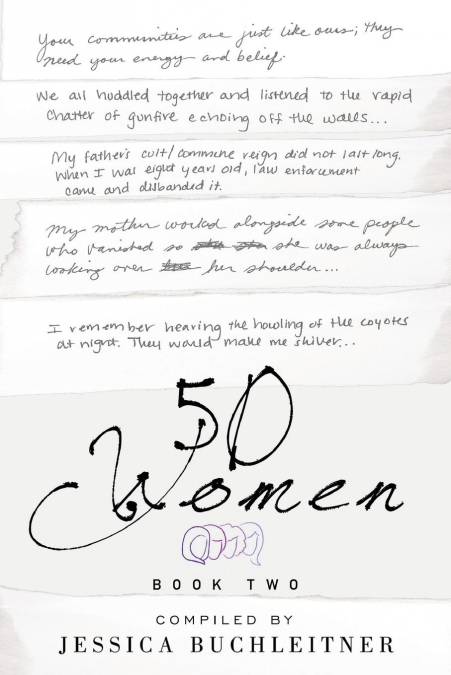 Your communities are just like ours; they
need your energy and belief.
We all huddled together and listened to the rapid
chatter of gunfire echoing off the walls...
My father's cult/commune reign did not last long.
When I was eight years old, law enforcement
came and disbanded it.
My mother worked alongside some people
who vanished so she was always
looking over her shoulder...
I remember hearing the howling of the coyotes
at night. They would make me shiver...
50
Women
BOOK TWO
COMPILED BY
JESSICA BUCHLEITNER